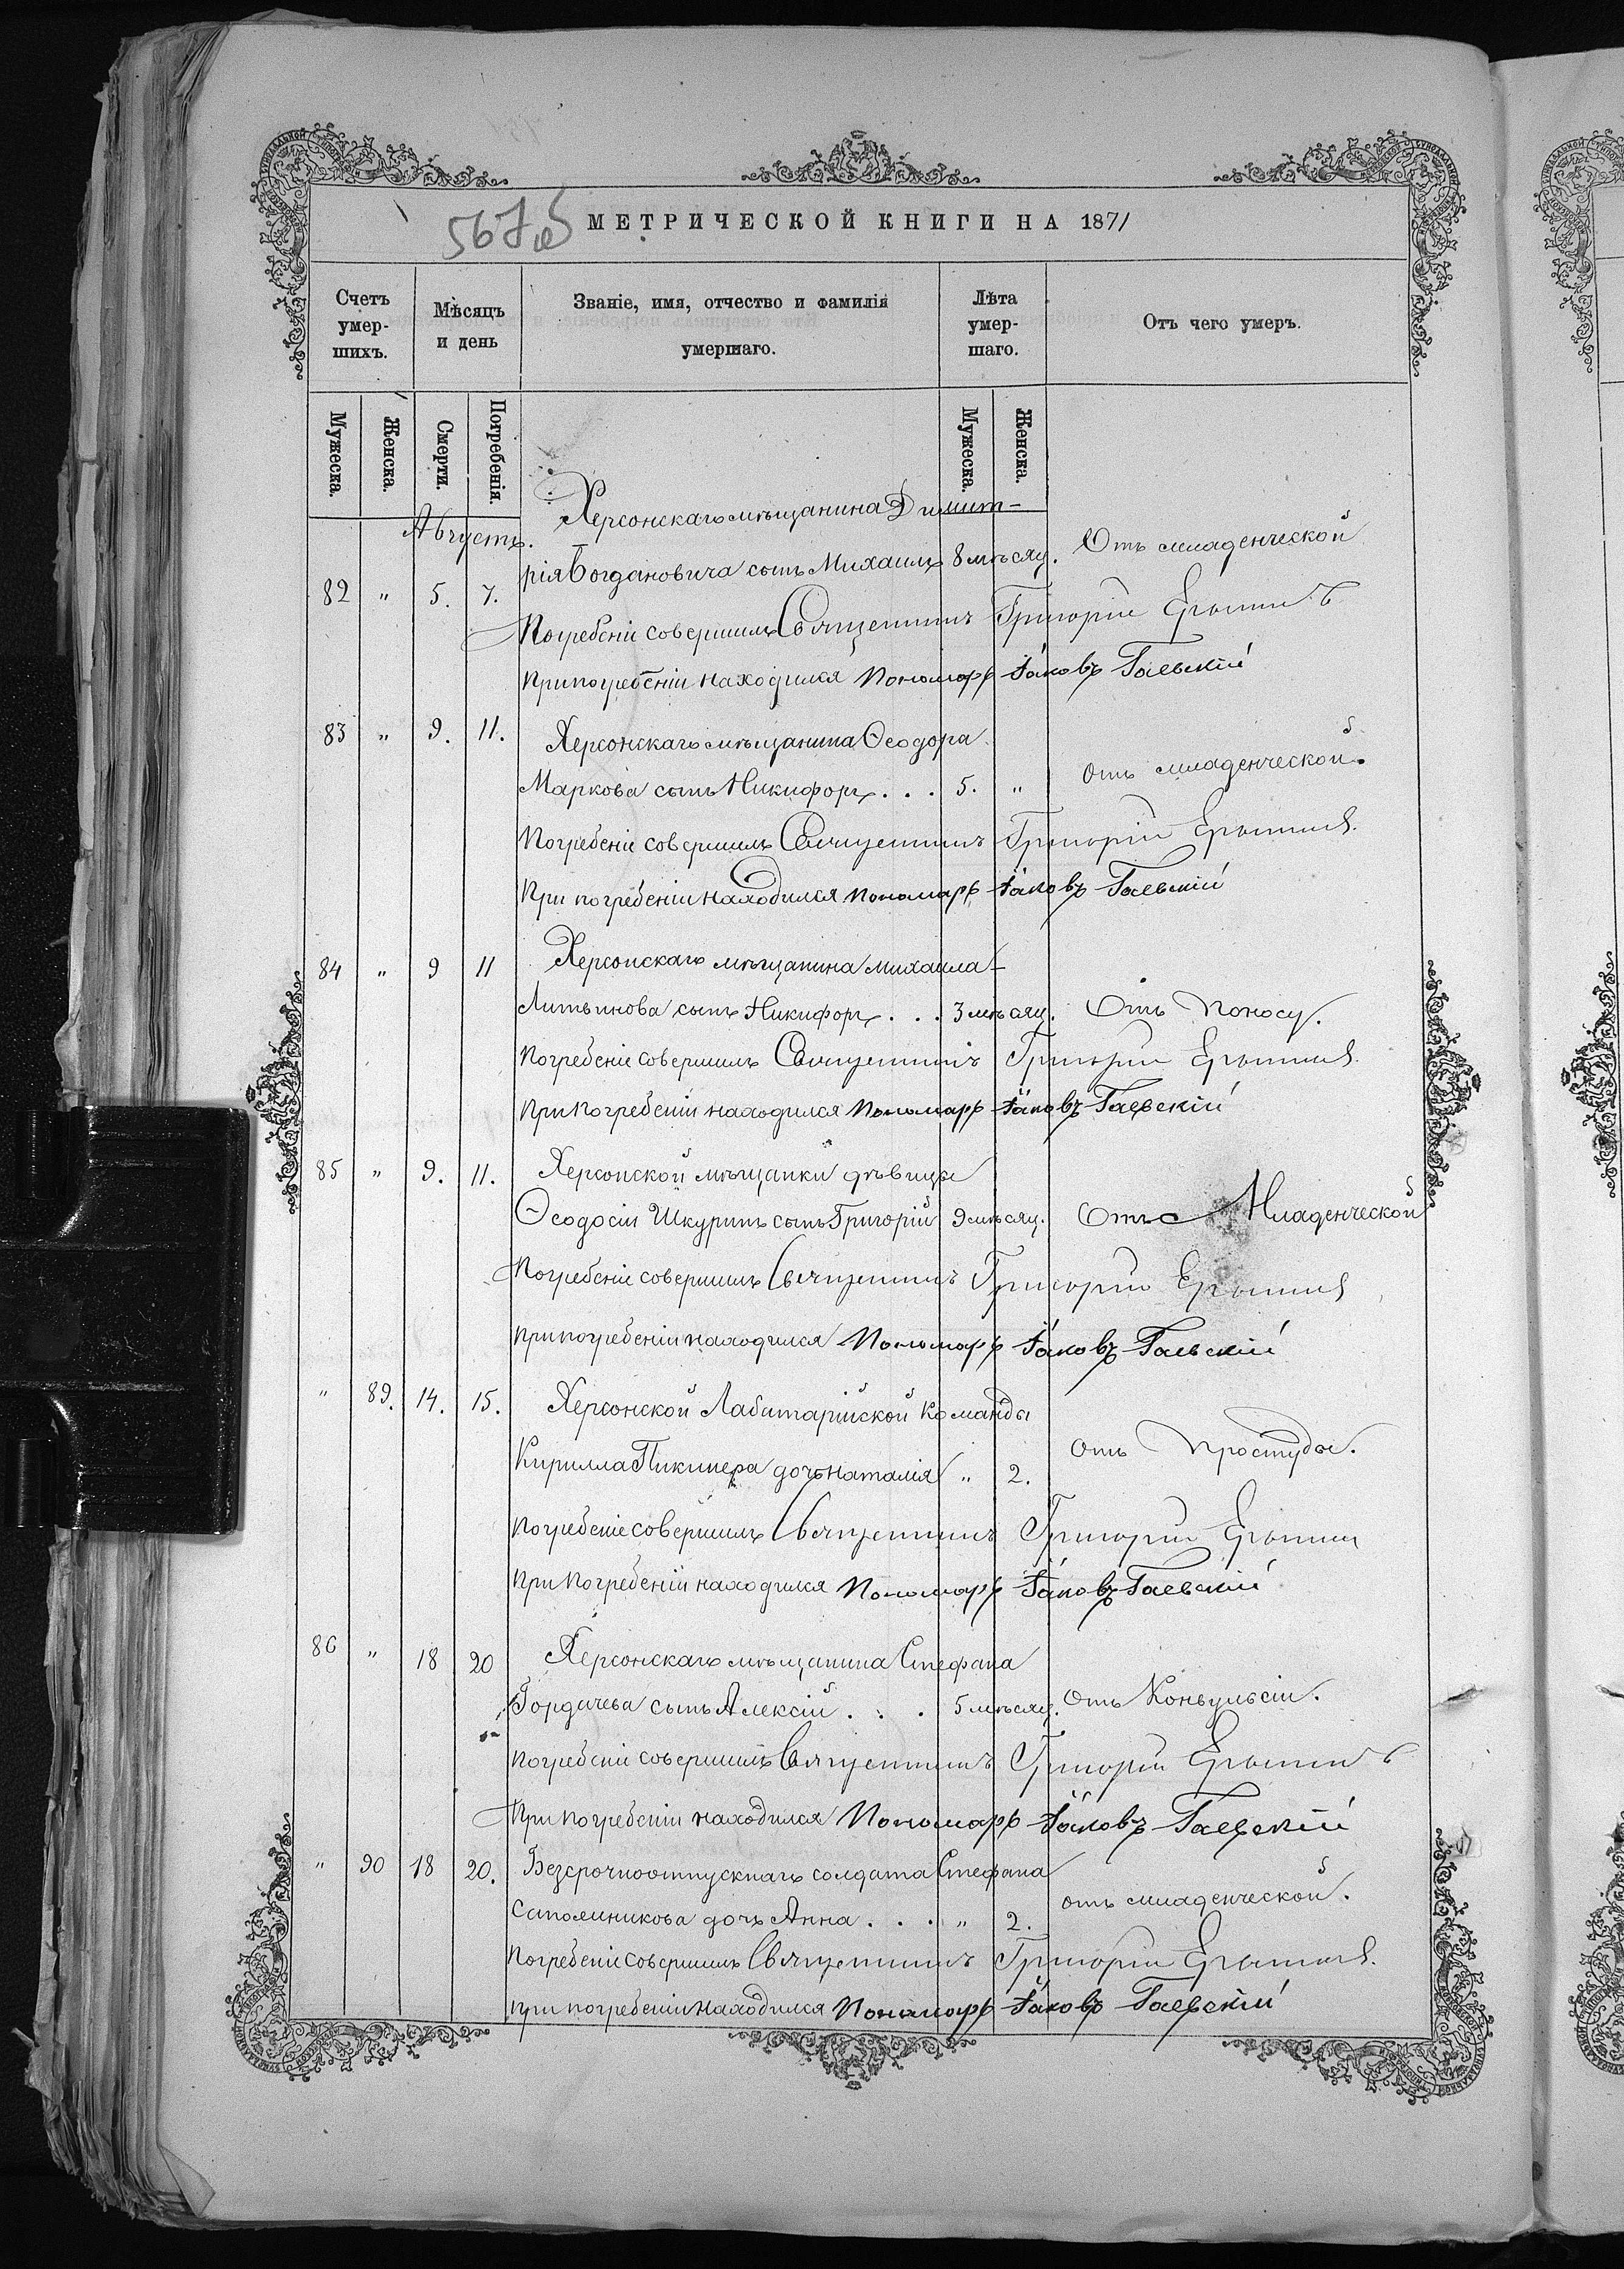 567
МЕТРИЧЕСКОЙ КНИГИ НА 1871
Счетъ умер-шихъ.
Мѣсяцъ и день
Званіе, имя, отчество и фамилія умершаго.
Лѣта умер-шаго.
Отъ чего умеръ.
Мужеска. Женска. Смерти. Погребенія. Мужеска. Женска.
Августъ.
Херсонскаго мѣщанина Димит-
82 " 5. 7. рія Богдановича сынъ Михаилъ 8 мѣсяц. Отъ младенческой
Погребеніе совершилъ Священникъ Григорій
При погребеніи находился Пономарь Іаковъ Гаевскій
83 " 9. 11. Херсонскаго мѣщанина Ѳеодора
Маркова сынъ Никифоръ . . . 5. " Отъ младенческой.
Погребеніе совершилъ Священникъ Григорій
При погребеніи находился Пономарь Іаковъ Гаевскій
84 " 9 11 Херсонскаго мѣщанина Михаила
Литвинова сынъ Никифоръ . . . 3 мѣсяц. Отъ поносу.
Погребеніе совершилъ Священникъ Григорій
При погребеніи находился Пономарь Іаковъ Гаевскій
85 " 9. 11. Херсонской мѣщанки дѣвицы
Ѳеодосіи Шкуринъ сынъ Григорій 9 мѣсяц. Отъ Младенческой
Погребеніе совершилъ Священникъ Григорій
При погребеніи находился Пономарь Іаковъ Гаевскій
" 89. 14. 15. Херсонской Лабитарійской Команды
Кирилла Пикинера дочь Наталія " 2. Отъ простуды.
Погребеніе совершилъ Священникъ Григорій
При погребеніи находился Пономарь Іаковъ Гаевскій
86 " 18 20 Херсонскаго мѣщанина Стефана
Гордичева сынъ Алексій . . . 5 мѣсяц. Отъ Конвульсіи.
Погребеніе совершилъ Священникъ Григорій
При погребеніи находился Пономарь Іаковъ Гаевскій
" 90 18 20. Безсрочноотпускнаго солдата Стефана
Сапожникова дочь Анна . . . " 2. отъ младенческой.
Погребеніе совершилъ Священникъ Григорій
При погребеніи находился Пономарь Іаковъ Гаевскій